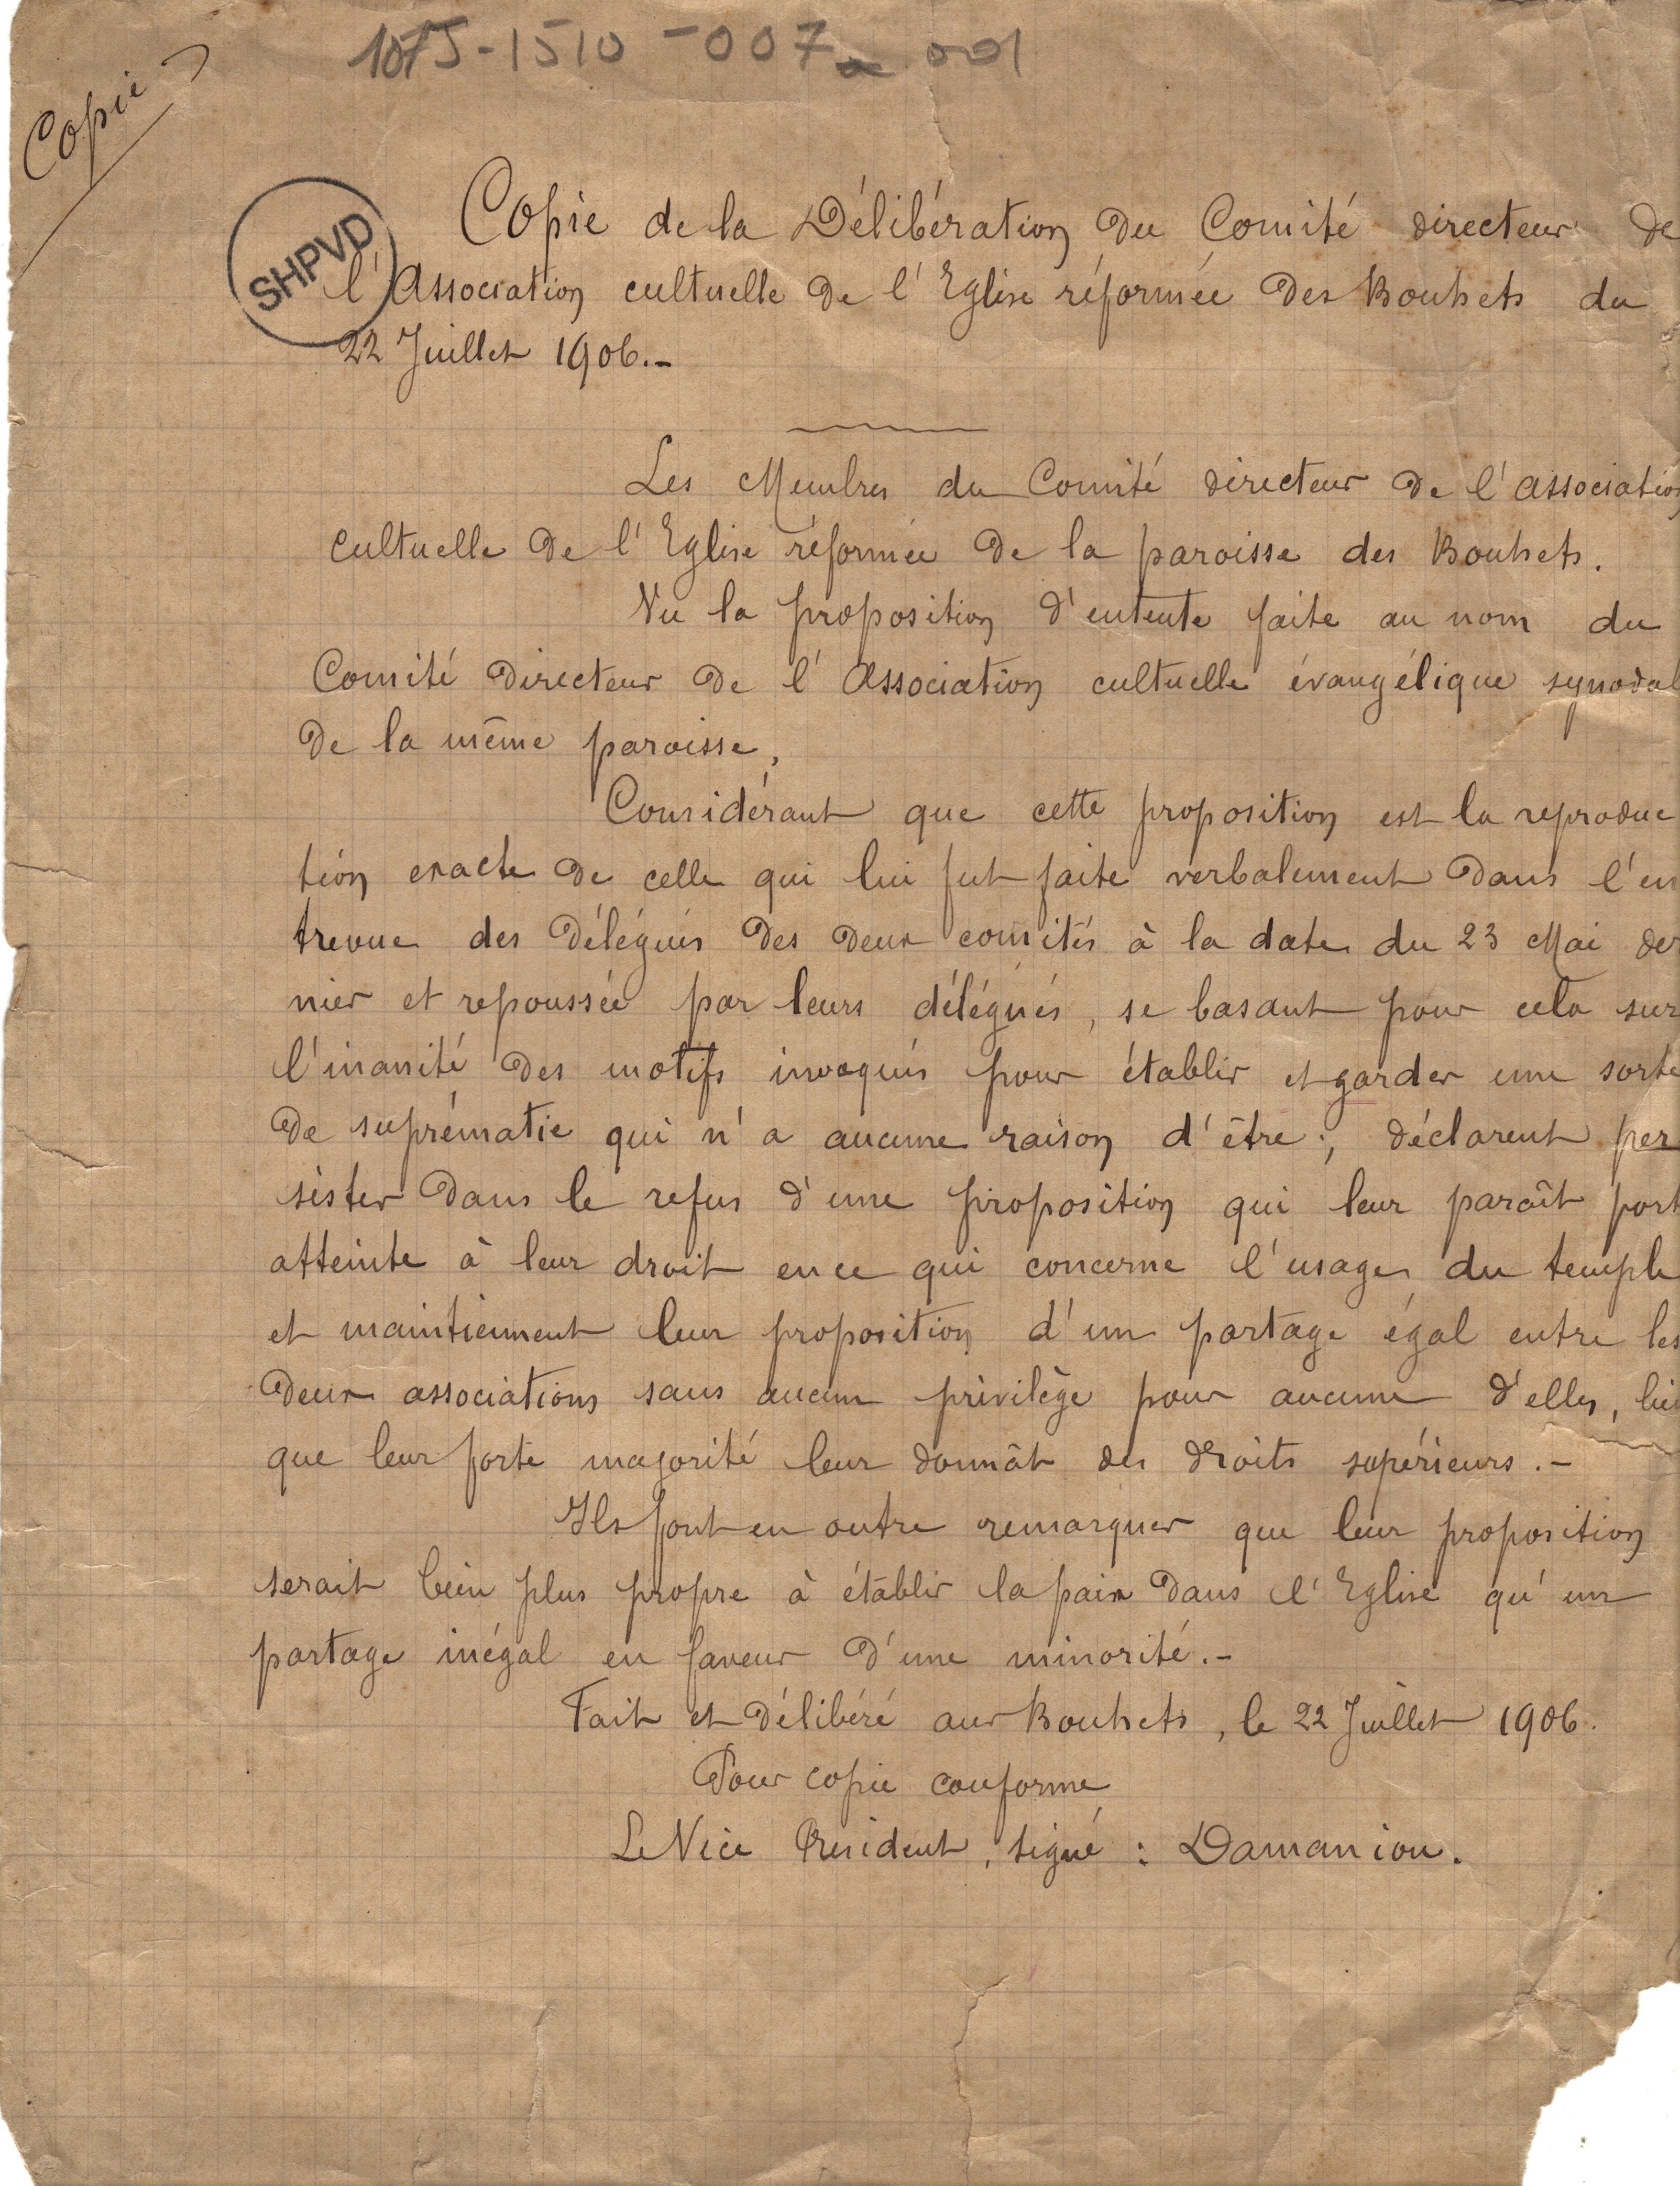 1075-1510-007 001
Copie
SHPVD
Copie de la Délibération du Comité directeur de
l'Association cultuelle de l'Eglise réformée des Bouhets du
22 Juillet 1906.-
Les Membres du Comité directeur de l'association
cultuelle de l'Eglise réformée de la paroisse des Bouhets.
Vu la proposition d'entente faite au nom du
Comité directeur de l'Association cultuelle évangélique synodal
de la même paroisse,
Considérant que cette proposition est la reproduc
tion exacte de celle qui lui fut faite verbalement dans l'en
trevue des délégués des deux comités à la date du 23 Mai der
nier et repoussée par leurs délégués, se basant pour cela sur
l'inanité des motifs invoqués pour établir et garder une sorte
de suprématie qui n'a aucune raison d'être; déclarent per
sister dans le refus d'une proposition qui leur paraît port
atteinte à leur droit en ce qui concerne l'usage du temple
et maintiennent leur proposition d'un partage égal entre les
deux associations sans aucun privilège pour aucune d'elles, bie
que leur forte majorité leur donnât des droits supérieurs.-
Ils font en outre remarquer que leur proposition
serait bien plus propre à établir la paix dans l'Eglise qu'un
partage inégal en faveur d'une minorité.-
Fait et délibéré aux Bouhets, le 22 Juillet 1906.
Pour copie conforme
Le Vice Président, signé : Damaniou.